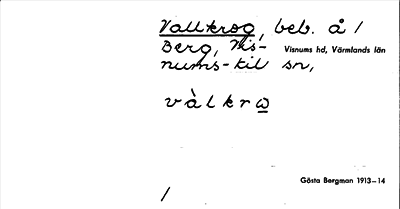 Vallkrog, beb. å /
Berg, Vis- Visnums hd, Värmlands län
nums-kil sn,
vàlkrω
Gösta Bergman 1913–14
/